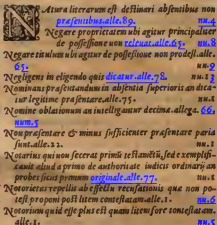 Natura literarum est destinari absentibus non
præsentibus.alle.89. nu.4
Negare proprietatem ubi agitur principaliter
de possessione non releuat.alle.65. nu.8
Negare titulum ubi agitur de possessione non prodest.alle.
65. nu.9
Negligens in eligendo quis dicatur.alle.78.
Nominans præsentandum in absentia superioris an dica-
tur legitime præsentare.alle.75. nu.4
Nomine oblationum an intelligantur decima.allega. 66.
num.5
Nonpræsentare & minus sufficienter præsentare paria
sunt.alle.22. nu.1
Notarius qui non fecerat primũ testamẽtũ, sed exemplifi-
cauit aliud a primo de authoritate iudicis ordinarij an
probet sicut primum originale.alle.77. nu.1
Notorietas repellit ab effectu recusationis qua non po-
test proponi post litem contestatam.alle.1. nu.6
Notorium quid esse plus est quam litem fore contestatam.
alle.1.